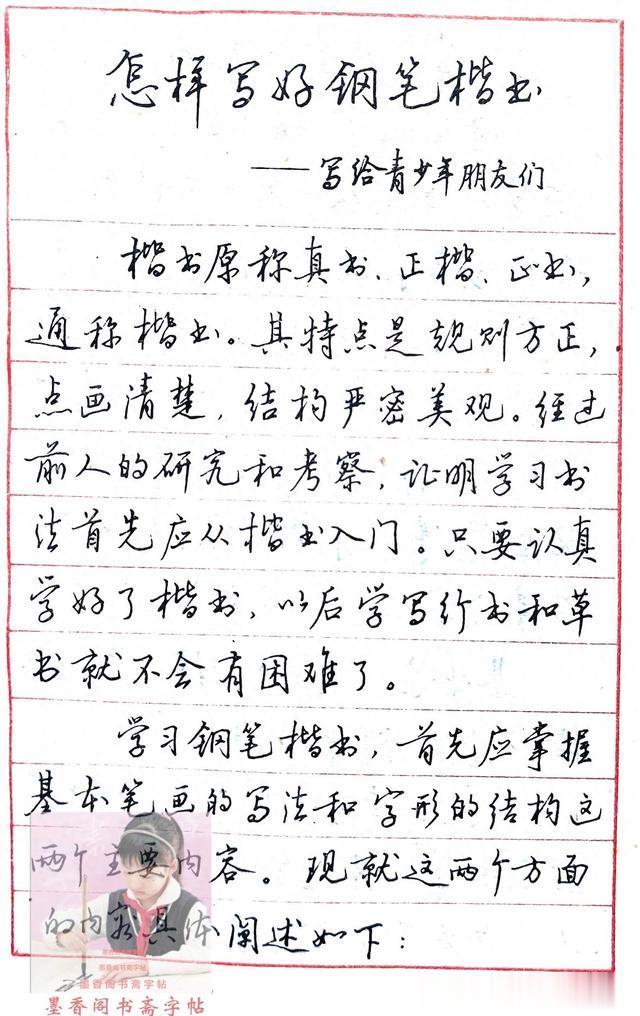 怎样写好钢笔楷书
——写给青少年朋友们
楷书原称真书、正楷、正书，
通称楷书。其特点是规则方正，
点画清楚，结构严密美观。经过
前人的研究和考察，证明学习书
法首先应从楷书入门。只要认真
学好了楷书，以后学写行书和草
书就不会有困难了。
学习钢笔楷书，首先应掌握
基本笔画的写法和字形的结构这
两个主要内容。现就这两个方面
的内容具体阐述如下：
墨香阁书斋字帖
墨香阁书斋字帖
墨香阁书斋字帖